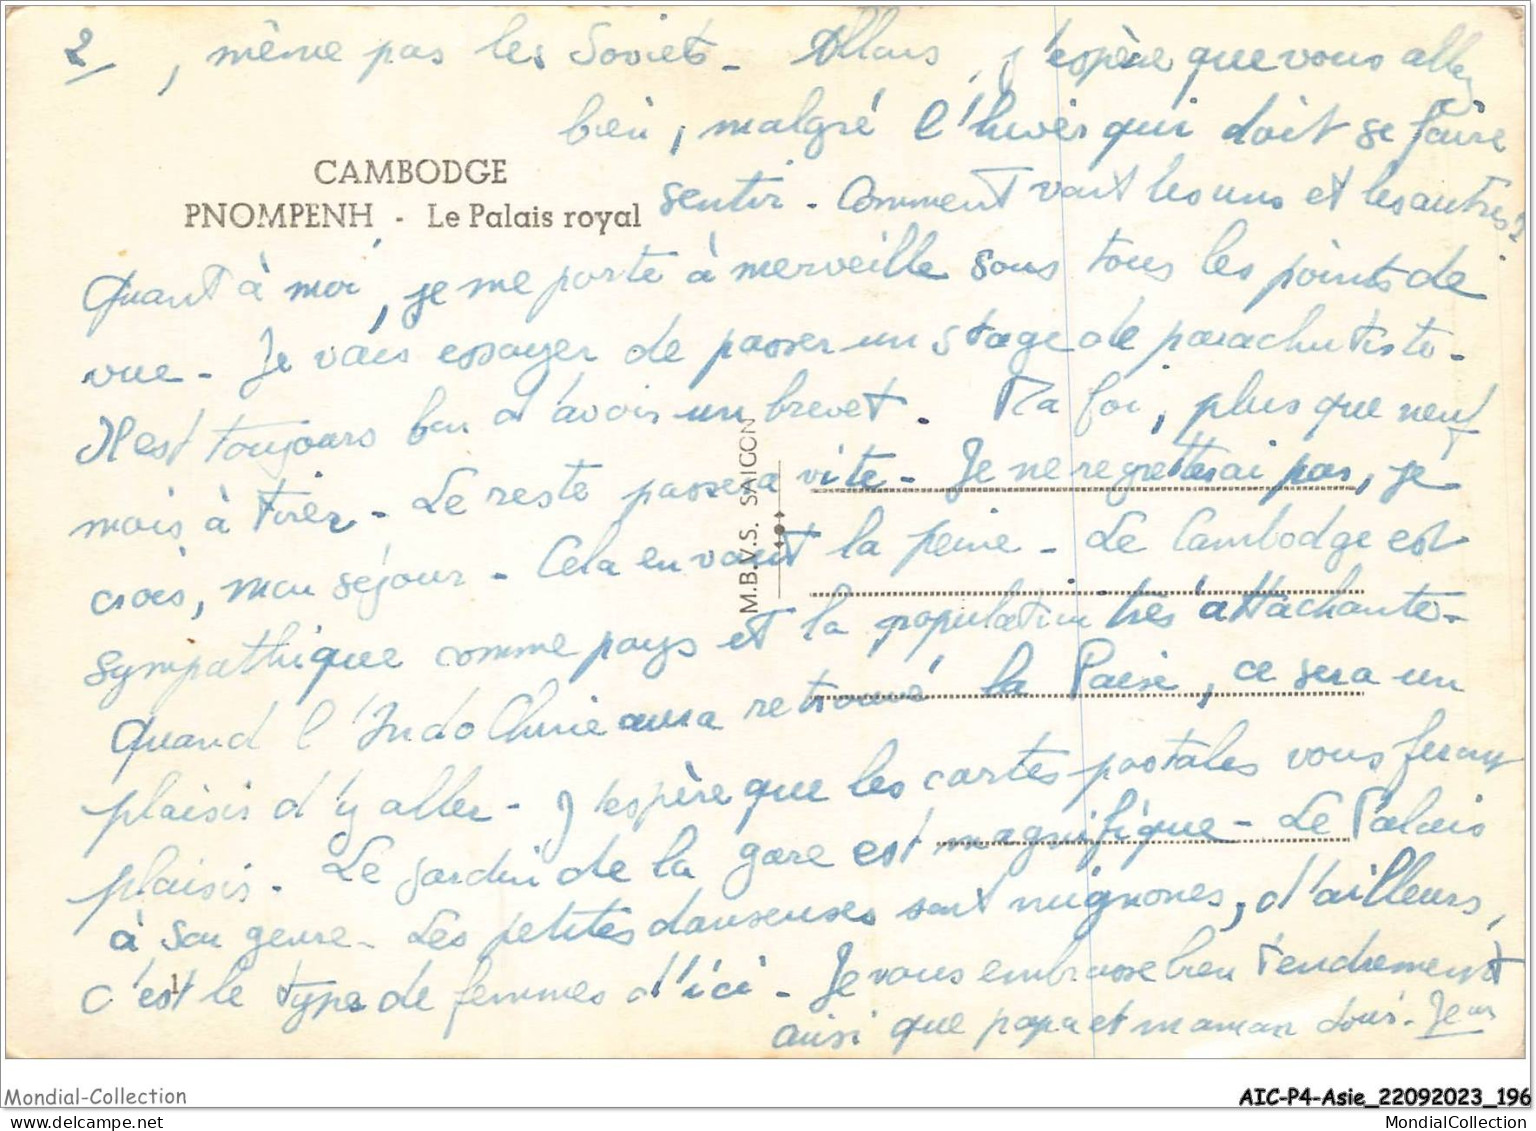 2/, même pas les Soviets - Allons, j'espère que vous allez
bien, malgré l'hiver qui doit se faire
CAMBODGE
sentir - Comment vont les uns et les autres ?
PNOMPENH - Le Palais royal
Quant à moi, je me porte à merveille sous tous les points de
vue - Je vais essayer de passer un stage de parachutiste -
Il est toujours bon d'avoir un brevet. Ma foi, plus que neuf
mois à tirer - Le reste passera vite - Je ne regretterai pas, je
crois, mon séjour - Cela en vaut la peine - Le Cambodge est
sympathique comme pays et la population très attachante -
Quand l'Indo Chine aura retrouvé la Paix, ce sera un
plaisir d'y aller - J'espère que les cartes postales vous feront
plaisir. Le jardin de la gare est magnifique - Le Palais
à son genre - Les petites danseuses sont mignones, d'ailleurs,
c'est le type de femmes d'ici - Je vous embrasse bien tendrement
ainsi que papa et maman - Jean
1
M.B.V.S. SAIGON
Mondial-Collection
AIC-P4-Asie_22092023_196
MondialCollection